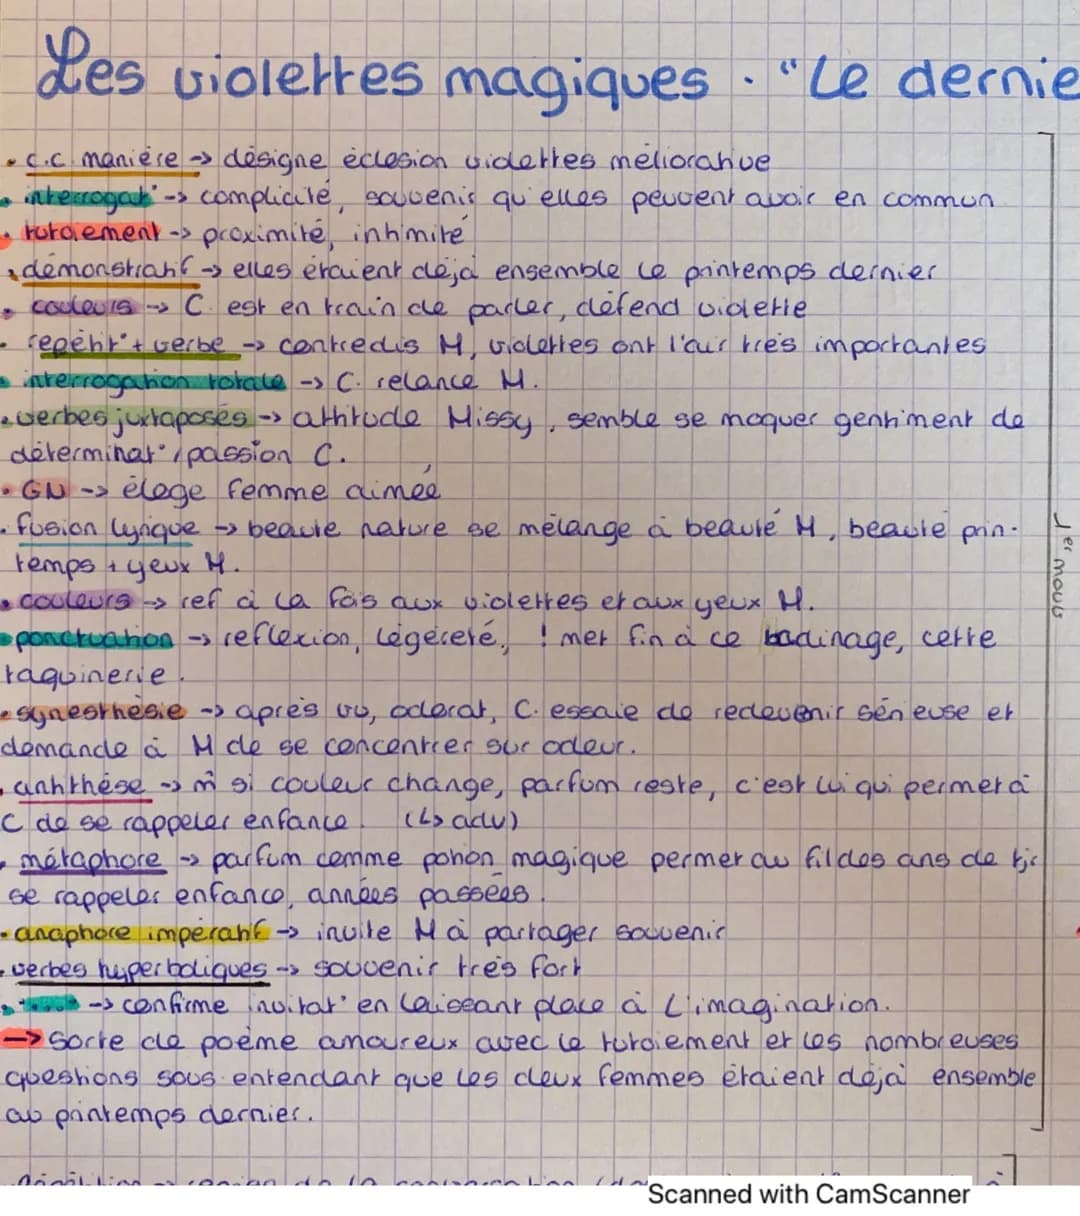 Les violettes magiques . "Le dernie
• c.c. manière -> désigne éclosion violettes méliorative
• interrogat° -> complicité, souvenir qu'elles peuvent avoir en commun
• tutoiement -> proximité, intimité
• démonstratif -> elles étaient déjà ensemble le printemps dernier
• couleurs -> C. est en train de parler, défend violette
• répétit° + verbe -> contredis M, violettes ont l'air très importantes
• interrogation totale -> C. relance M.
• verbes juxtaposés -> attitude Missy, semble se moquer gentiment de
déterminat°/passion C.
• GN -> éloge femme aimée
• fusion lyrique -> beauté nature se mélange à beauté M, beauté prin-
temps + yeux M.
• couleurs -> ref à la fois aux violettes et aux yeux M.
• ponctuation -> reflexion, légèreté, ! met fin à ce badinage, cette
taquinerie.
• synesthésie -> après vu, odorat, C. essaie de redevenir sérieuse et
demande à M de se concentrer sur odeur.
• antithèse -> m̂ si couleur change, parfum reste, c'est lui qui permet à
C de se rappeler enfance. (↳ adv)
• métaphore -> parfum comme potion magique permet au fil des ans de tjr
se rappeler enfance, années passées.
• anaphore impératif -> invite M à partager souvenir
• verbes hyperboliques -> souvenir très fort
• ..... -> confirme invitat° en laissant place à l'imagination.
-> sorte de poème amoureux avec le tutoiement et les nombreuses
questions sous-entendant que les deux femmes étaient déjà ensemble
au printemps dernier.
1er mouv
Scanned with CamScanner